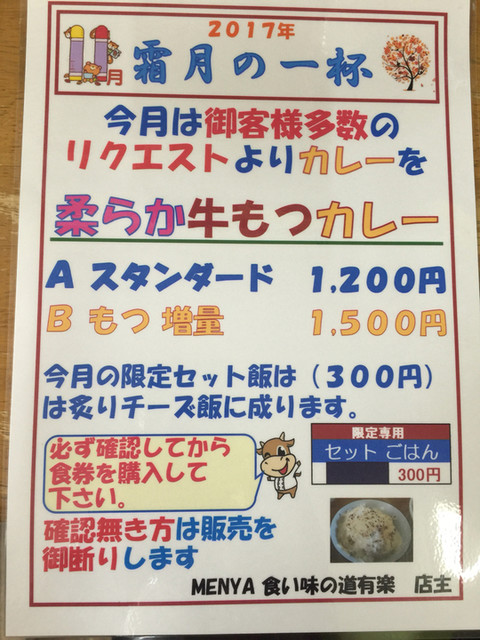 2017年
11月 霜月の一杯
今月は御客様多数の
リクエストよりカレーを
柔らか牛もつカレー
A スタンダード 1,200円
B もつ 増量 1,500円
今月の限定セット飯は(300円)
は炙りチーズ飯に成ります。
必ず確認してから
食券を購入して
下さい。
限定専用
セット ごはん
300円
確認無き方は販売を
御断りします
MENYA 食い味の道有楽 店主